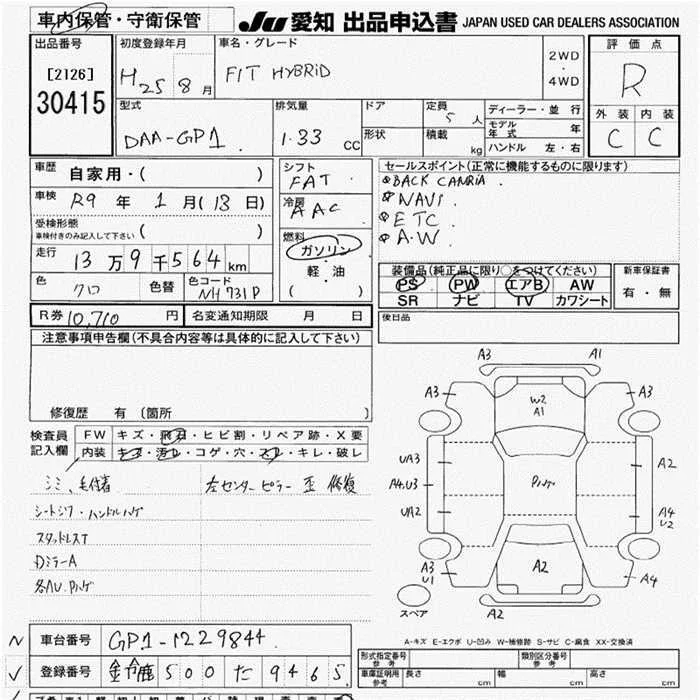 車内保管・守衛保管
JU 愛知 出品申込書 JAPAN USED CAR DEALERS ASSOCIATION
出品番号
[2126]
30415
初度登録年月
H25 8月
車名・グレード
FIT HYBRID
2WD
・
4WD
評価点
R
外装 内装
C C
型式
DAA-GP1
排気量
1.33 CC
ドア
形状
定員
5人
積載
kg
ディーラー・並行
モデル年式 年
ハンドル 左・右
車歴 自家用・( )
車検 R9年 1月(13日)
受検形態
車検付きのみ記入して下さい ( )
走行
13万9千564km
色
クロ
色替
色コード
NH731P
シフト
FAT
冷房
AAC
燃料
ガソリン
・
軽・油
( )
セールスポイント(正常に機能するものに限ります)
BACK CAMRIA
NAVI
ETC
A.W
装備品(純正品に限り○をつけてください)
PS PW エアB AW
SR ナビ TV カワシート
新車保証書
有・無
R券 10,710円
名変通知期限 月 日
後日品
注意事項申告欄(不具合内容等は具体的に記入して下さい)
修復歴 有 〔箇所 〕
検査員記入欄
FW キズ・飛石・ヒビ割・リペア跡・X要
内装 キズ・汚レ・コゲ・穴・スレ・キレ・破レ
シミ、毛付着
左センターピラー 歪 修復
シートシワ・ハンドルハゲ
スタッドレスT
DミラーA
各AU.Pハゲ
A3 A1
A3 W2 A1 A3
UA3 A2
A4.U3 Pハゲ
UA2 A4 U2
A3 U1 A2 A4
スペア A2
A-キズ E-エクボ U-凹み W-補修跡 S-サビ C-腐食 XX-交換済
車台番号 GP1-1229844
登録番号 鈴鹿 500 た 9465
形式指定番号
参考
類別区分番号
参考
車庫証明用
参考
長さ cm 幅 cm 高さ cm